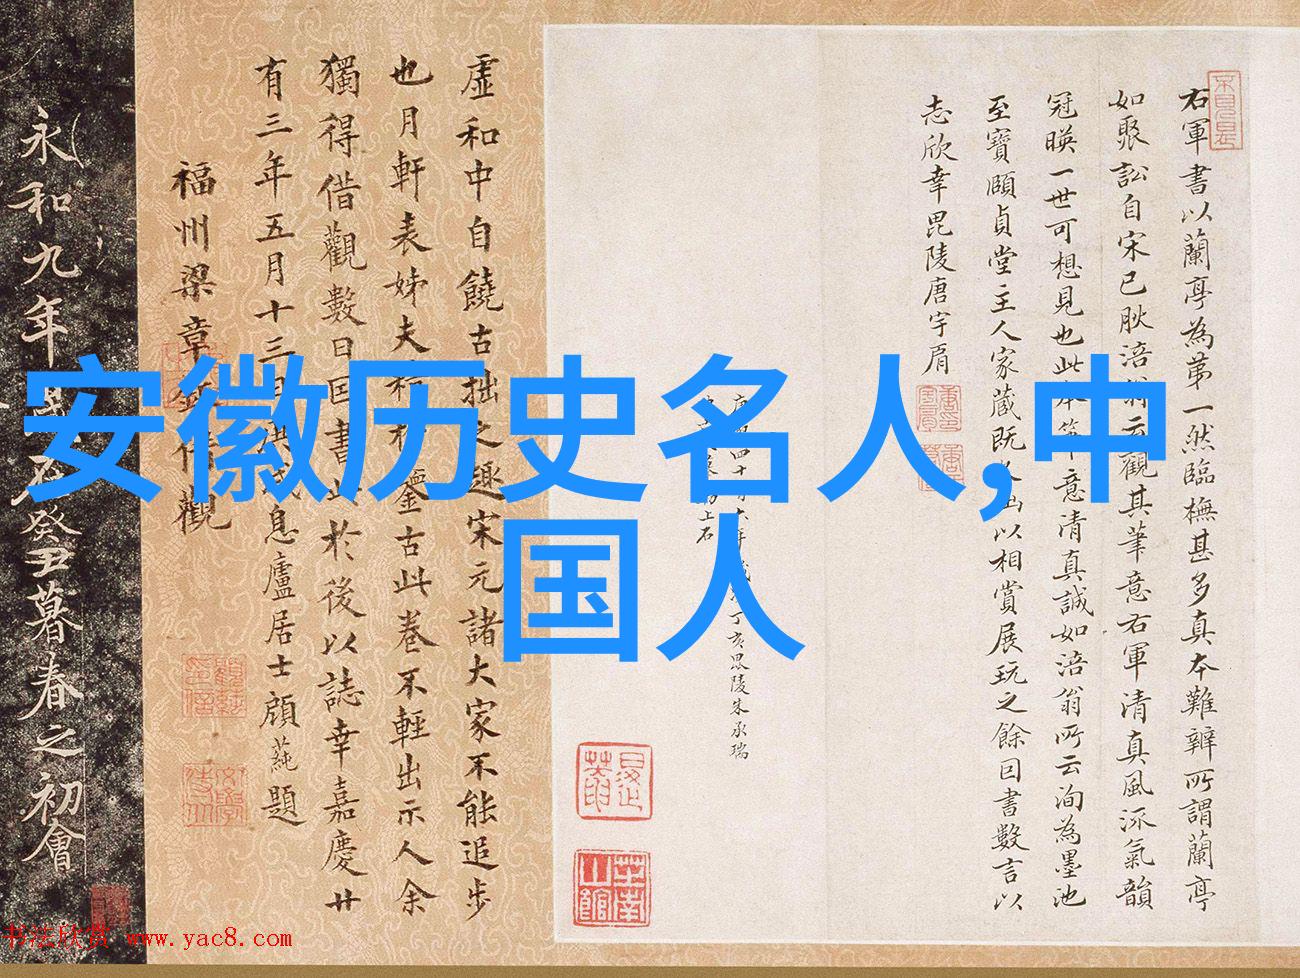 安徽历史名人,中
国人
右軍書以蘭亭為第一然臨橅甚多真本難辨所謂蘭亭
如聚訟自宋已耿涪翁云觀其筆意右軍清真風流氣韻
冠暎一世可想見也此本筆意清真誠如涪翁所云洵為墨池
至寶頤貞堂主人家藏既久出以相賞展玩之餘因書數言以
志欣幸毘陵唐宇肩
丁亥毘陵朱承瑞
上石
虛和中自饒古拙之趣宋元諸大家不能追步
也月軒表姊夫鑒古此卷不輕出示人余
獨得借觀數日因書此於後以誌幸嘉慶廿
有三年五月十三日息廬居士顧蒓題
福州梁章鉅借觀
永和九年歲在癸丑暮春之初會
书法欣赏 www.yac8.com